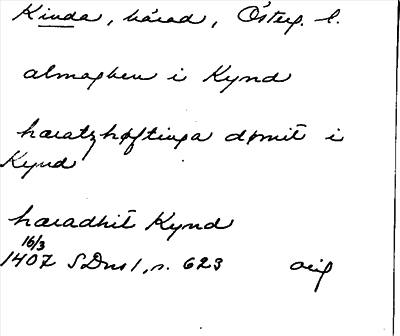 Kinda, härad, Österg. l.
almoghen i Kynd
hæratzhøftinga dømit i
Kynd
hæradhit Kynd
16/3
1407 SDns 1, s. 623 orig